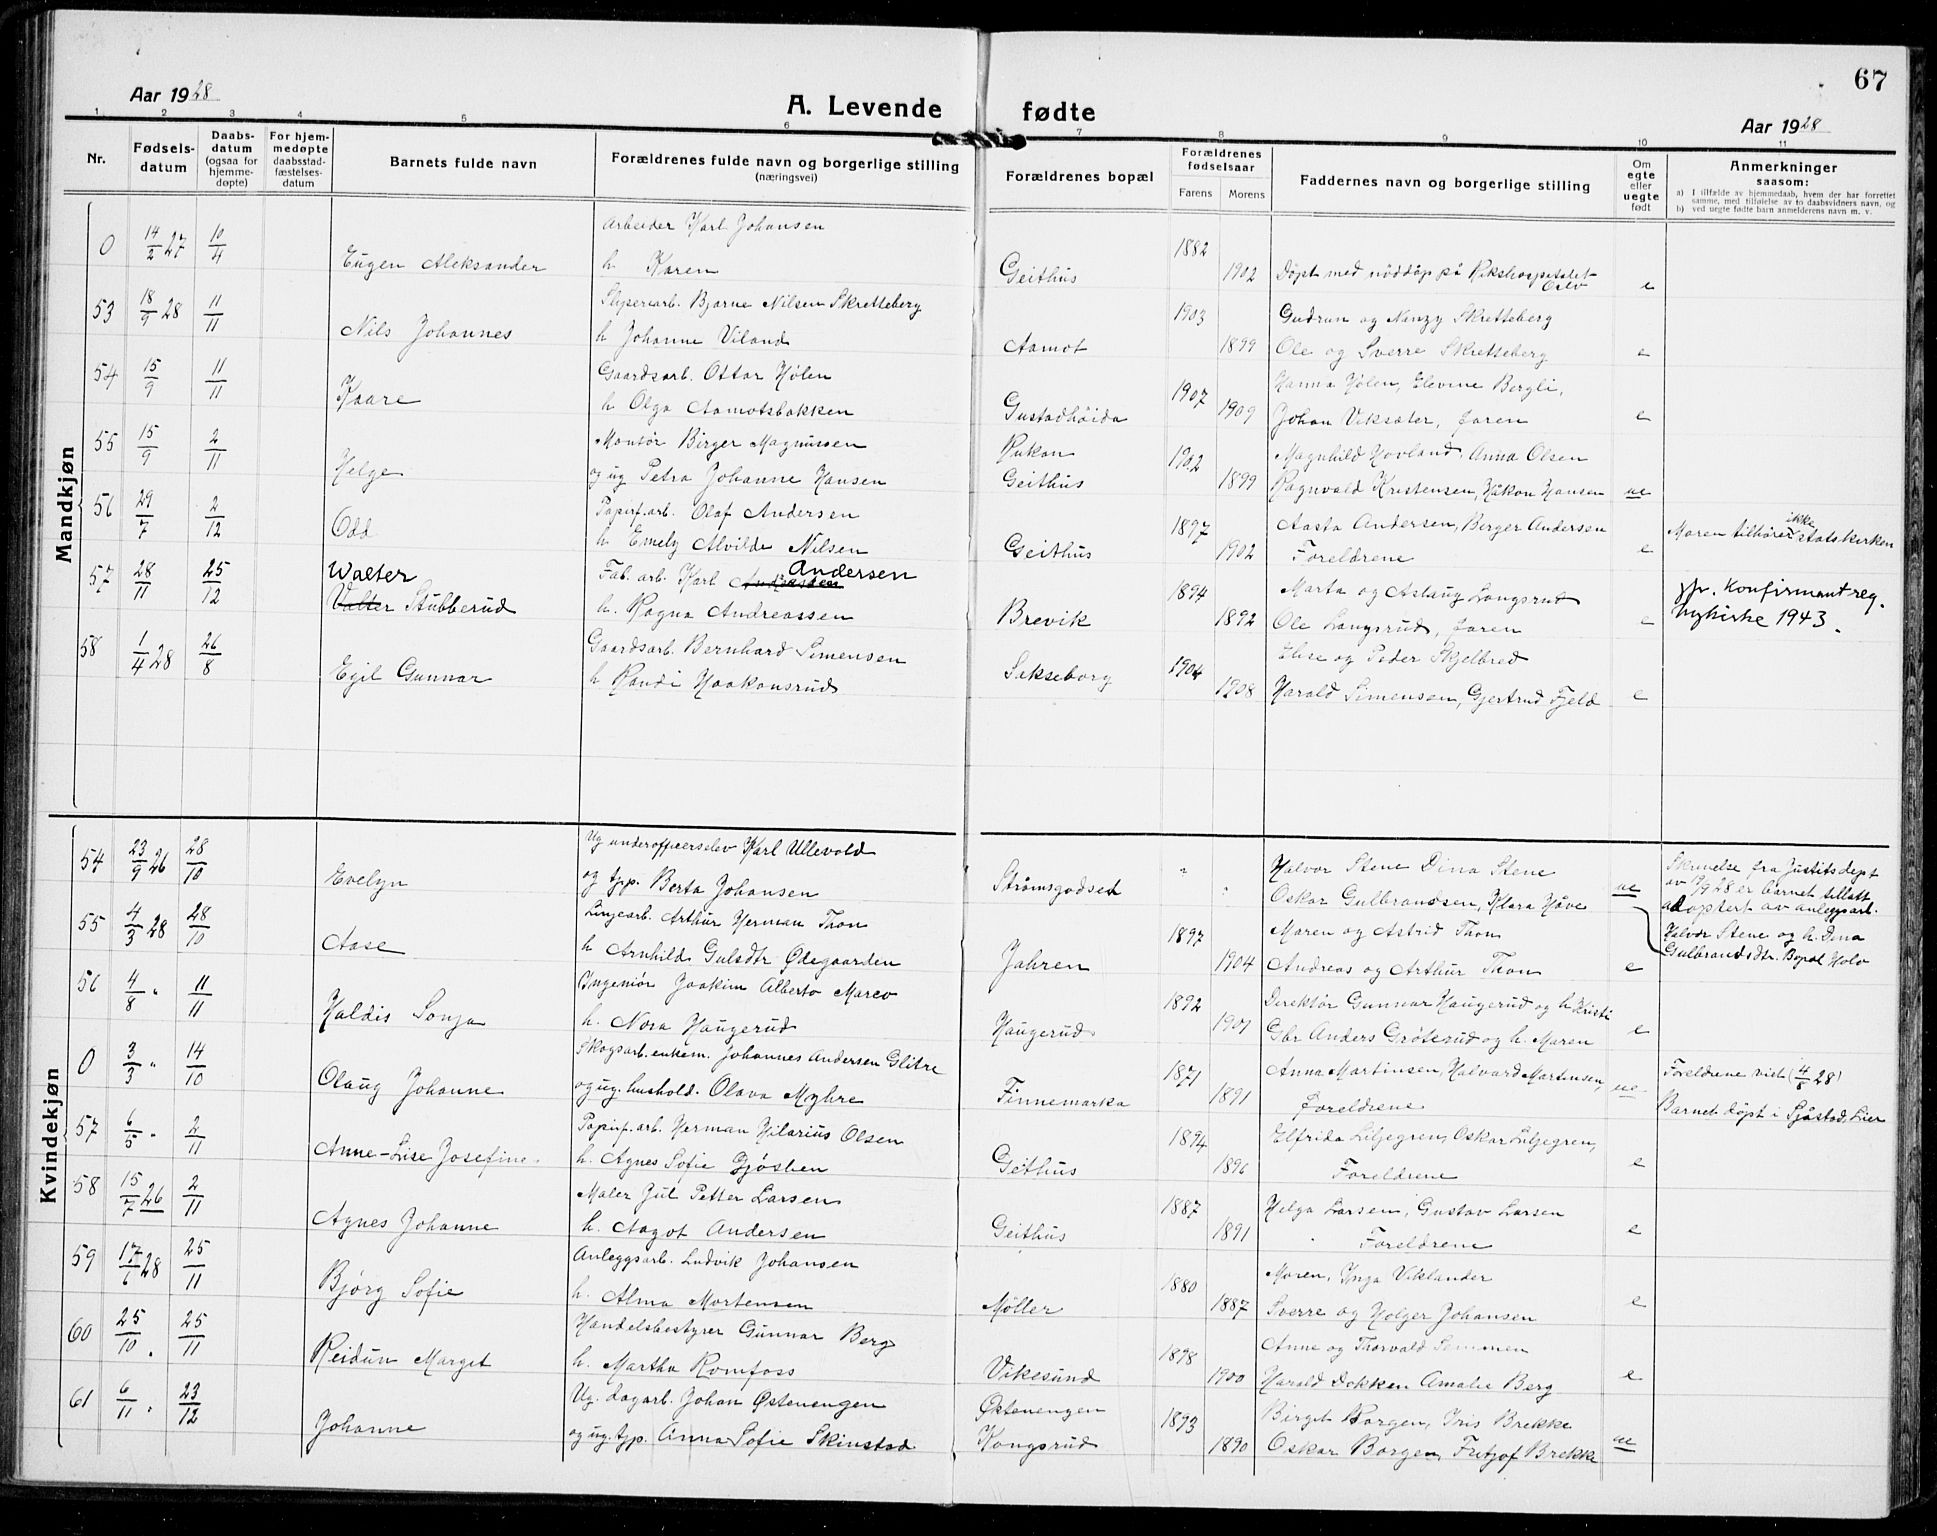 67
Aar 1928
A. Levende fødte
Aar 1928
1 2 3 4 5 6 7 8 9 10 11
Nr.
Fødsels-datum
Daabs-datum (ogsaa for hjemme-døpte)
For hjem-medøpte daabsstad-fæstelses-datum
Barnets fulde navn
Forældrenes fulde navn og borgerlige stilling
(næringsvei)
Forældrenes bopæl
Forældrenes fødselsaar
Farens Morens
Faddernes navn og borgerlige stilling
Om egte eller uegte født
Anmerkninger
saasom:
a) I tilfælde av hjemmedaab, hvem der har forrettet samme, med tilføielse av to daabsvidners navn, og
b) ved uegte fødte barn anmelderens navn m. v.
Mandkjøn
Arbeider Karl Johansen
0 14/2 27 10/4 Eugen Aleksander h Karen Geithus 1882 1902 Døpt med nøddåp på Rikshospitalet Oslo e
Slyseriarb. Bjarne Nilsen Skretteberg 1903 Gudrun og Nanzy Skretteberg
53 18/9 28 11/11 Nils Johannes h Johanne Viland Aamot 1899 Ole og Sverre Skretteberg e
Gaardsarb. Ottar Hølen 1907 Hanna Hølen, Elevine Bergli,
54 15/9 11/11 Kaare h Olga Aamotsbakken Gustadhøida 1909 Johan Viksæter, faren e
Montør Birger Magnussen Rukan 1902 Magnhild Hovland, Anna Olsen
55 15/9 2/11 Helge og ug Petra Johanne Hansen Geithus 1899 Ragnvald Kristensen, Håkon Hansen ue
Papirf.arb. Olaf Andersen 1897 Aasta Andersen, Berger Andersen
56 29/7 2/12 Odd h Emely Alvilde Nilsen Geithus 1902 Foreldrene e Moren tilhører ikke statskirken
Walter Fab. arb. Karl Andersen 1894 Marta og Aslaug Langsrud
57 28/11 25/12 Valter Stubberud h. Ragna Andreassen Brevik 1892 Ole Langsrud, faren e jfr. Konfirmantreg. Nykirke 1943.
Gaardsarb. Bernhard Simensen 1904 Elise og Peder Skjelbred
58 1/4 28 26/8 Egil Gunnar h Randi Haakonsrud Sekseborg 1908 Harald Simensen, Gjertrud Fjeld e
Kvindekjøn
Ug underofficerselev Karl Ullevold " Halvor Stene Dina Stene
54 23/9 26 28/10 Evelyn og tjp. Berta Johansen Strømsgodset " Oskar Gulbrandsen, Klara Hove ue
Skrivelse fra Justitsdept
av 17/9 28 er barnet tillatt
adoptert av anleggsarb.
Halvor Stene og h. Dina
Gulbrandsdtr. Bopæl Hole
Linjearb. Arthur Herman Thon 1897 Maren og Astrid Thon
55 4/3 28 28/10 Aase h Arnhild Gulsdtr Ødegaarden Jahren 1904 Andreas og Arthur Thon e
Ingeniør Joakim Alberto Marco 1892 Direktør Gunnar Haugerud og h Kristi
56 4/8 " 11/11 Haldis Sonja h. Nora Haugerud Haugerud 1901 Gbr Anders Grøterud og h. Maren e
Skogsarb. enkem. Johannes Andersen Glitre 1871 Anna Martinsen, Halvard Martinsen,
0 3/3 " 14/10 Olaug Johanne og ug. hushold. Olava Myhre Finnemarka 1891 foreldrene ue
Foreldrene viet (4/8 28)
Barnet døpt i Sjåstad, Lier
Papirf. arb. Herman Hilarius Olsen 1894 Elfrida Liljegren, Oskar Liljegren,
57 6/5 " 2/11 Anne-Lise Josefine h. Agnes Sofie Gjøslien Geithus 1896 Foreldrene e
Maler Jul Petter Larsen 1887 Helga Larsen, Gustav Larsen
58 15/7 26 2/11 Agnes Johanne h. Aagot Andersen Geithus 1891 Foreldrene e
Anleggsarb. Ludvik Johansen 1880 Moren, Inga Viklander
59 17/6 28 25/11 Bjørg Sofie h. Alma Mortensen Møller 1887 Sverre og Holger Johansen e
Handelsbestyrer Gunnar Berg 1898 Anne og Thorvald Simmen
60 25/10 " 25/11 Reidun Marget h. Martha Romfoss Vikesund 1900 Harald Dokken Amalie Berg e
Ug. dagarb. Johan Østenengen Østenengen 1893 Birgit Borgen, Iris Brekke
61 6/11 " 23/12 Johanne og ug. tjp. Anna Sofie Skinstad Kongsrud 1890 Oskar Borgen, Fritjof Brekke ue